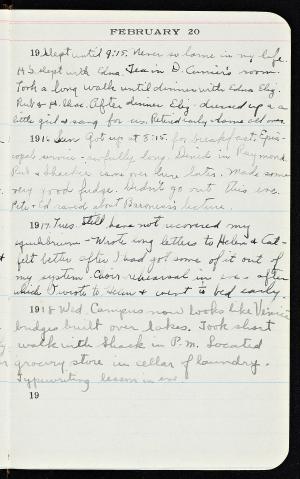 FEBRUARY 20
19 Slept until 9:15. Never so lame in my life.
H.S. slept with Edna. Tea in D. Currier's room.
Took a long walk until dinner with Edna Eliz.
Ruth & H. Chac. After dinner Eliz. dressed up as a
little girl & sang for us. Retired early - lame all over.
1916 Sun Got up at 8:15 for breakfast. Epis-
copal service - awfully long. Dined in Raymond.
& Shackie came over here later. Made some
very good fudge. Didn't go out this eve.
Pete & Ed raved about Baroness's lecture.
1917. Tues. Still have not recovered my
equilibrium - Wrote long letters to Helen & Cal -
felt better after I had got some of it out of
my system. Choir rehearsal in eve - after
which I wrote to Helen & went to bed early.
1918 Wed. Campus now looks like Venice
bridges built over lakes. Took short
walk with Shack in P.M. Located
grocery store in cellar of laundry.
Typewriting lesson in eve
19